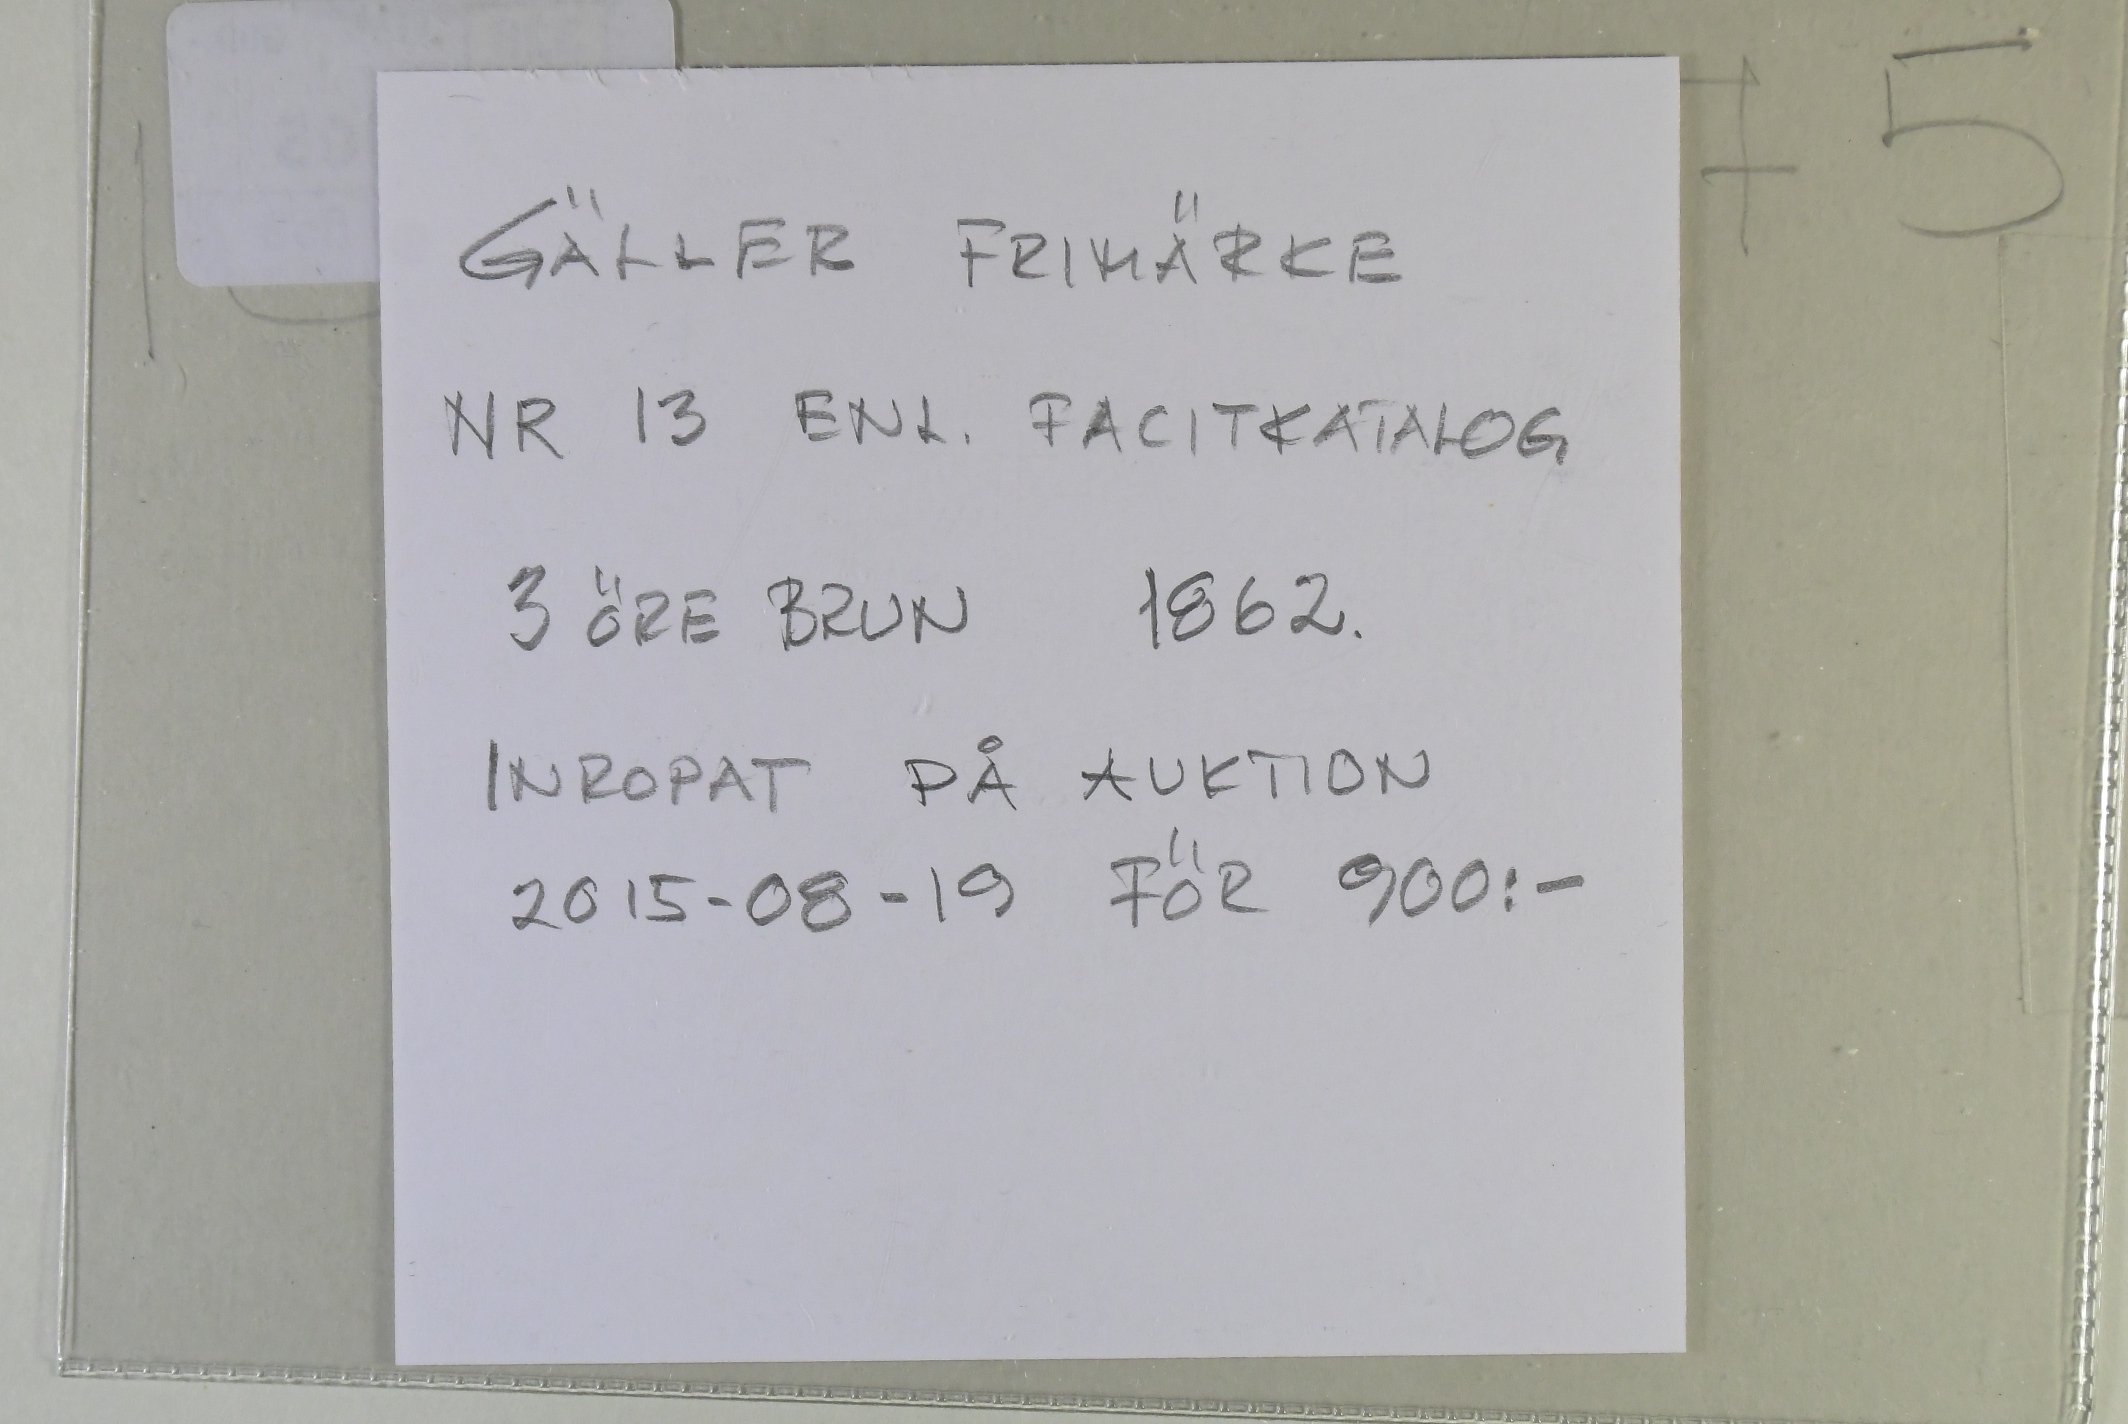 75
GÄLLER FRIMÄRKE
NR 13 ENL. FACITKATALOG
3 ÖRE BRUN 1862.
INROPAT PÅ AUKTION
2015-08-19 FÖR 900:-